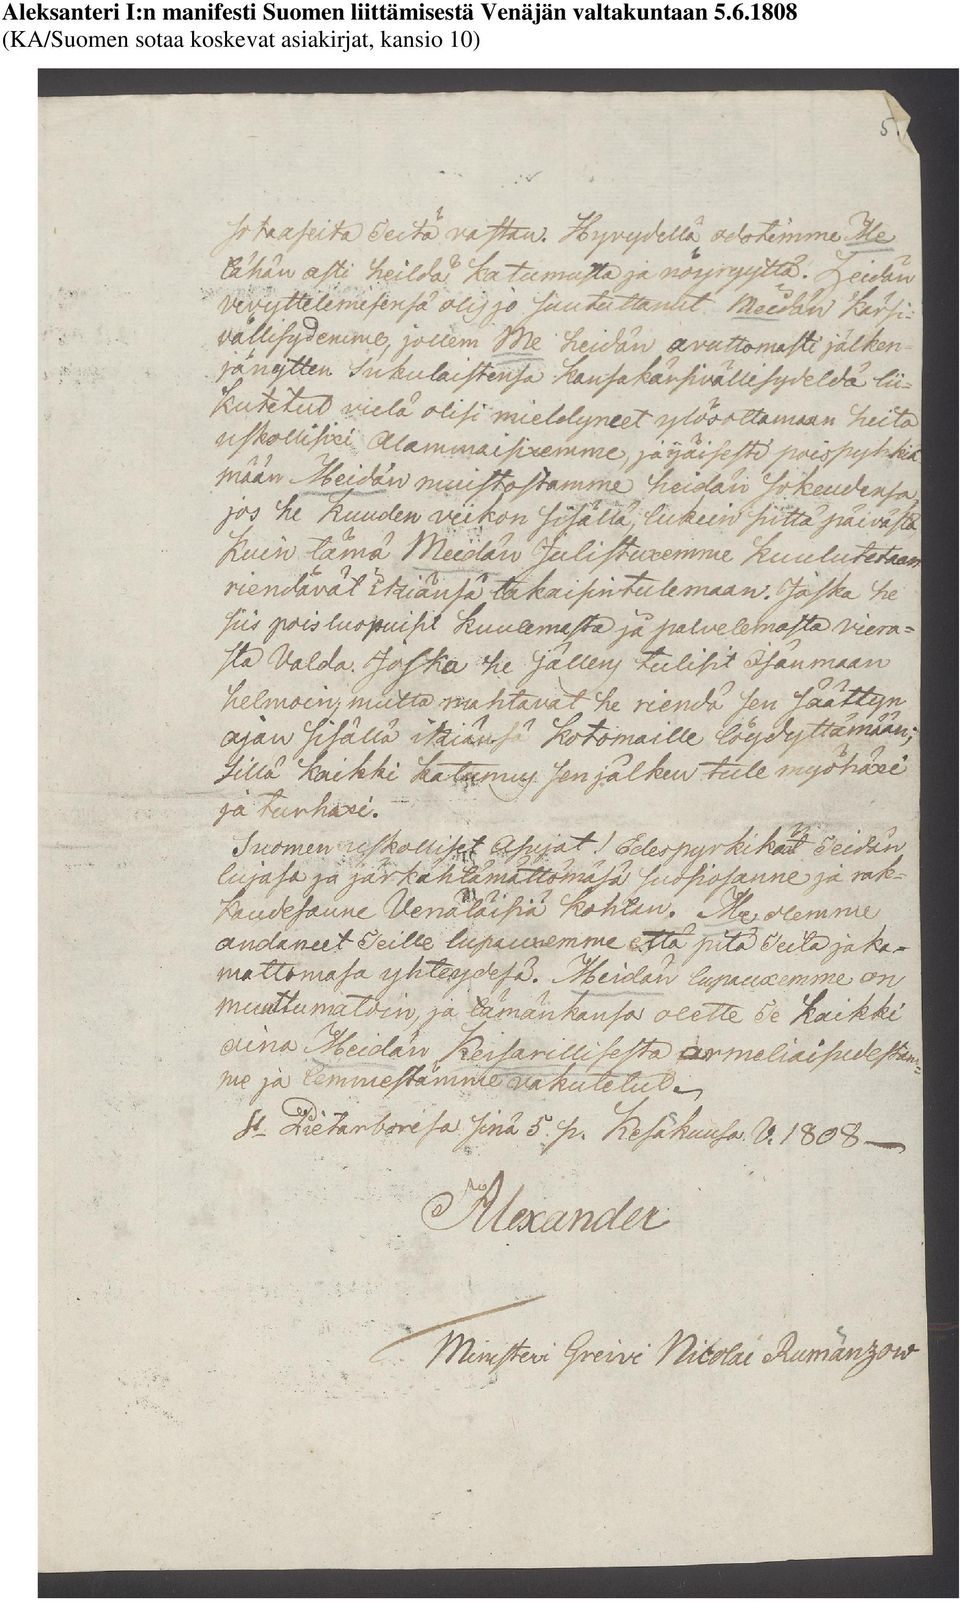 Aleksanteri I:n manifesti Suomen liittämisestä Venäjän valtakuntaan 5.6.1808
(KA/Suomen sotaa koskevat asiakirjat, kansio 10)
5.
sotaaseita Teitä vastan. Hyvydellä odotimme Me
tähän asti heildä katumusta ja nöyryyttä. Heidän
vivyttelemisensä olis jo suututtanut Meidän kärsi-
vällisydemme, jollem Me heidän avuttomasti jälken-
jänytten Sukulaistensa kansa kärsivällisydeldä lii-
kutetud vielä olisi mieldyneet ylösottamaan heitä
uskollisixi Alammaisixemme, ja yäisesti poispyhkiä
mään Meidän muistostamme heidän sokeudensa,
jos he kuuden viikon sisällä, lukein siitä päivästä,
kuin tämä Meidän Julistuxemme kuulutetaan
riendävät itziänsä takaisintulemaan. Joska he
siis poisluopuisit kuulemasta ja palvelemasta viera-
sta Valda. Joska he jällens tulisit Isänmaan
helmoin, mutta mahtavat he riendä sen säättyn
ajan sisällä itziänsä kotomaille löydyttämään;
sillä kaikki katumus sen jälken tule myöhäxi
ja turhaxi.
Suomen uskolliset Asujat! Edespyrkikät Teidän
lujasa ja järkähtämättömäsä suosiosanne ja rak-
kaudesanne Venäläisiä kohtan. Me olemme
andaneet Teille lupauxemme että pitä Teitä jaka-
mattomasa yhteydesä. Meidän lupauxemme on
muuttumatoin, ja tämänkansa olette Te kaikki
aina Meidän Keisarillisesta armeliaisudestam-
me ja Lemmestämme vakutetud.
St Pietarborisa sinä 5 p. Kesäkuusa V. 1808
Alexander
Ministeri Greivi Nicolai Rumänzow